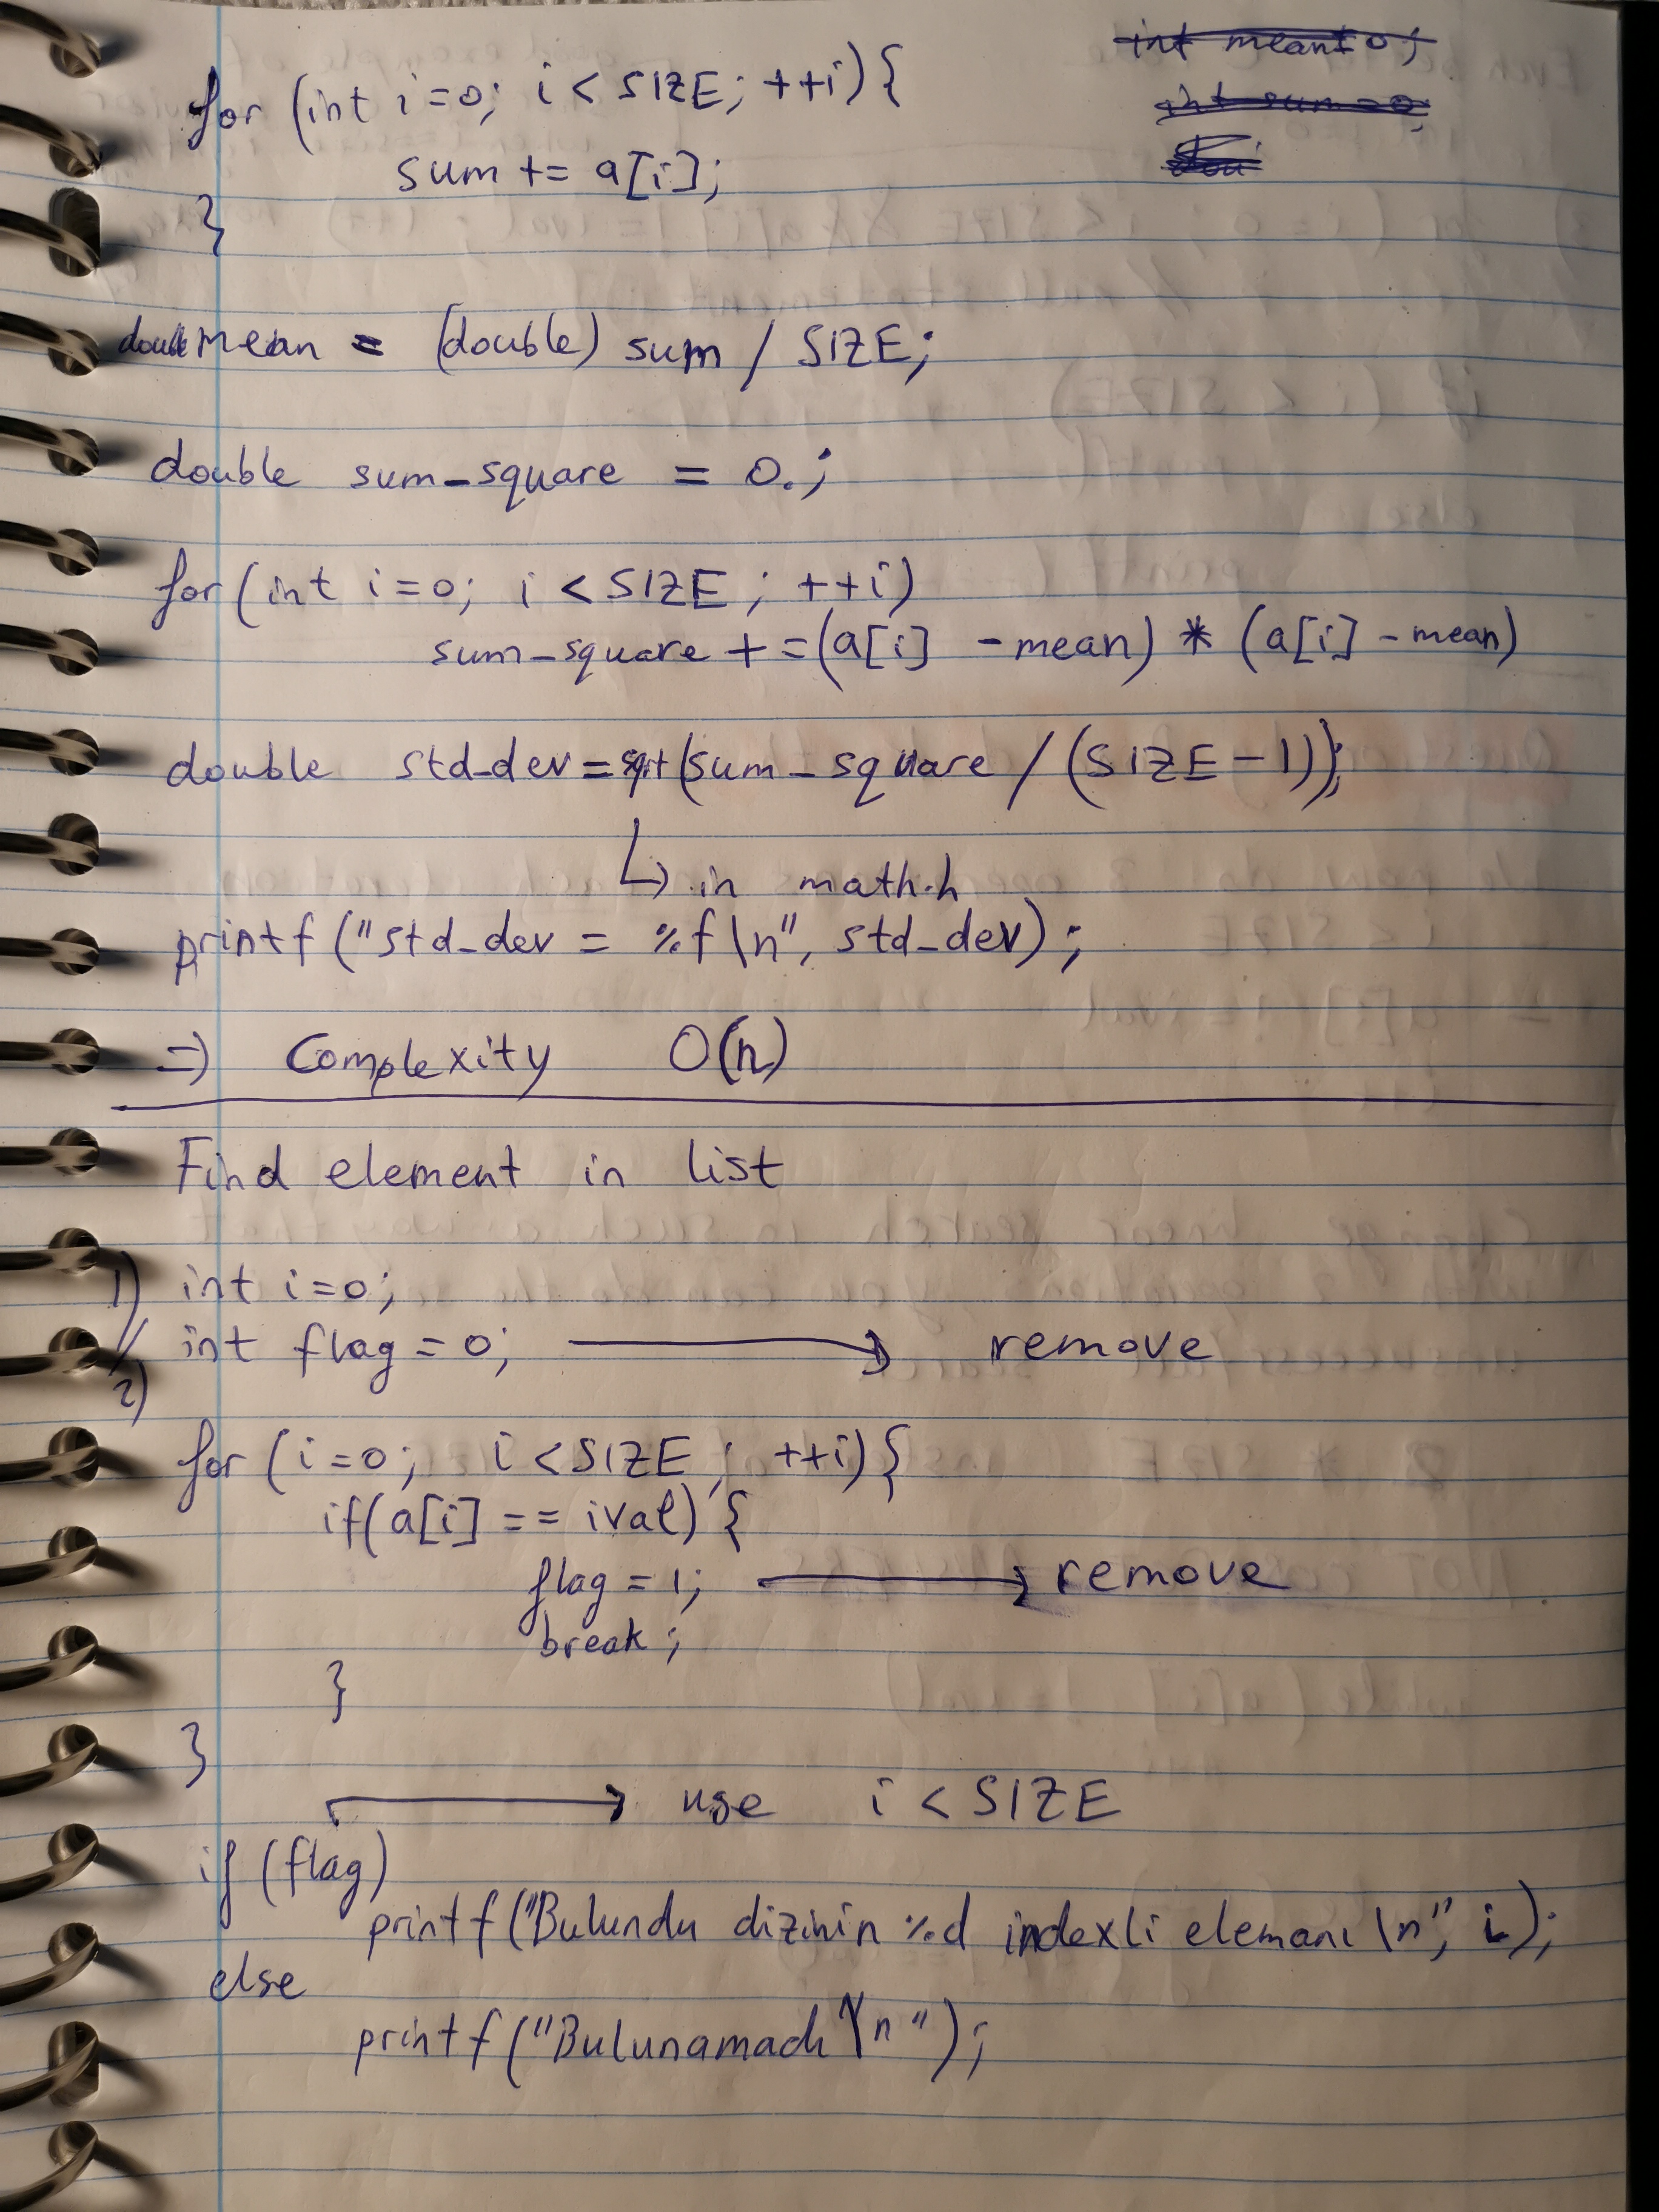 int mean = 0;
int sum = 0;
for (int i=0; i < SIZE; ++i) {
sum += a[i];
}
double mean = (double) sum / SIZE;
double sum_square = 0.;
for (int i=0; i < SIZE; ++i)
sum_square += (a[i] - mean) * (a[i] - mean)
double std_dev = sqrt(sum_square / (SIZE-1));
↳ in math.h
printf ("std_dev = %f\n", std_dev);
=> Complexity O(n)
Find element in list
1) int i=0;
2) int flag = 0; → remove
for (i=0; i < SIZE; ++i) {
if(a[i] == ival) {
flag = 1; → remove
break;
}
}
→ use i < SIZE
if (flag)
printf("Bulundu dizinin %d indexli elemanı \n", i);
else
printf("Bulunamadı \n");